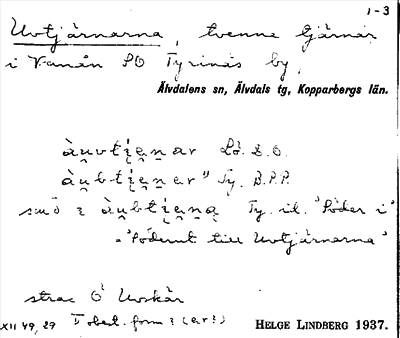 1-3
Uvtjärnarna, tvenne tjärnar
i Vanån SO Tyrinäs by,
Älvdalens sn, Älvdals tg, Kopparbergs län.
àu̯vti̯e̯n̥ar Lš. B.O.
àu̯bti̯e̯n̥er" Ty. B.P.P.
smð i àu̯bti̯e̯n̥a̯ Ty. il. "Söder i"
= "Söderut till Uvtjärnarna"
strax Ö Uvskär
XII 49, 29 T obest. form ? (ar?)
HELGE LINDBERG 1937.